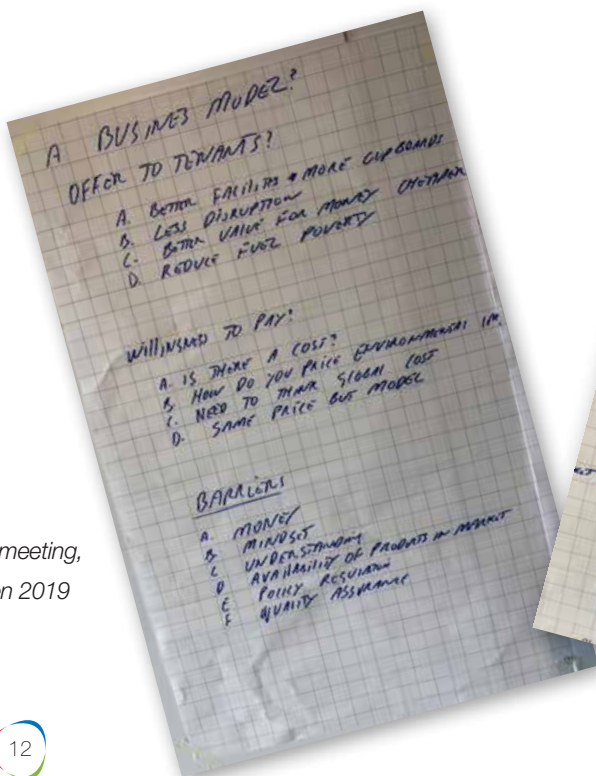 A BUSINES MODEL?
OFFER TO TENANTS?
A. BETTER FACILITIES + MORE CUPBOARDS
B. LESS DISRUPTION
C. BETTER VALUE FOR MONEY
D. REDUCE FUEL POVERTY
WILLINGNESS TO PAY?
A. IS THERE A COST?
B. HOW DO YOU PRICE ENVIRONMENTAL
C. NEED TO THINK GLOBAL COST
D. SAME PRICE BUT MODEL
BARRIERS
A. MONEY
B MINDSET
C UNDERSTANDING
D AVAILABILITY OF PRODUCTS IN MARKET
E POLICY REGULATION
F QUALITY ASSURANCE
meeting,
en 2019
12